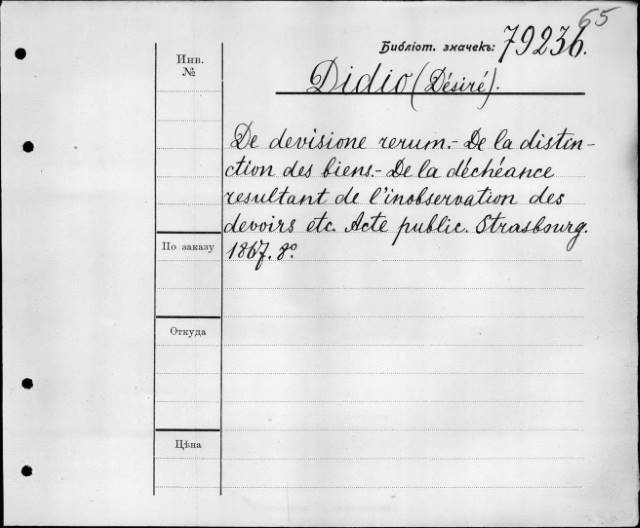 65
Библіот. значекъ: 79236.
Инв.
№
Didio (Désiré).
De devisione rerum.- De la distin-
ction des biens.- De la déchéance
resultant de l'inobservation des
devoirs etc. Acte public. Strasbourg.
1867. 8º
По заказу
Откуда
Цѣна